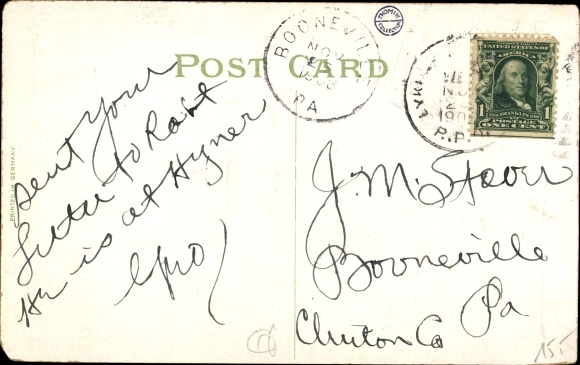 POST CARD
THOMIN COLLECTION
BOONEVIL
NOV
1908
PA
R.P.
UNITED STATES OF AMERICA
FRANKLIN
1
POSTAGE
ONE CENT
PRINTED IN GERMANY
Sent Your
Letter to Robt
He is at Hyner
J. M. Stover
Booneville
Clinton Co Pa
155